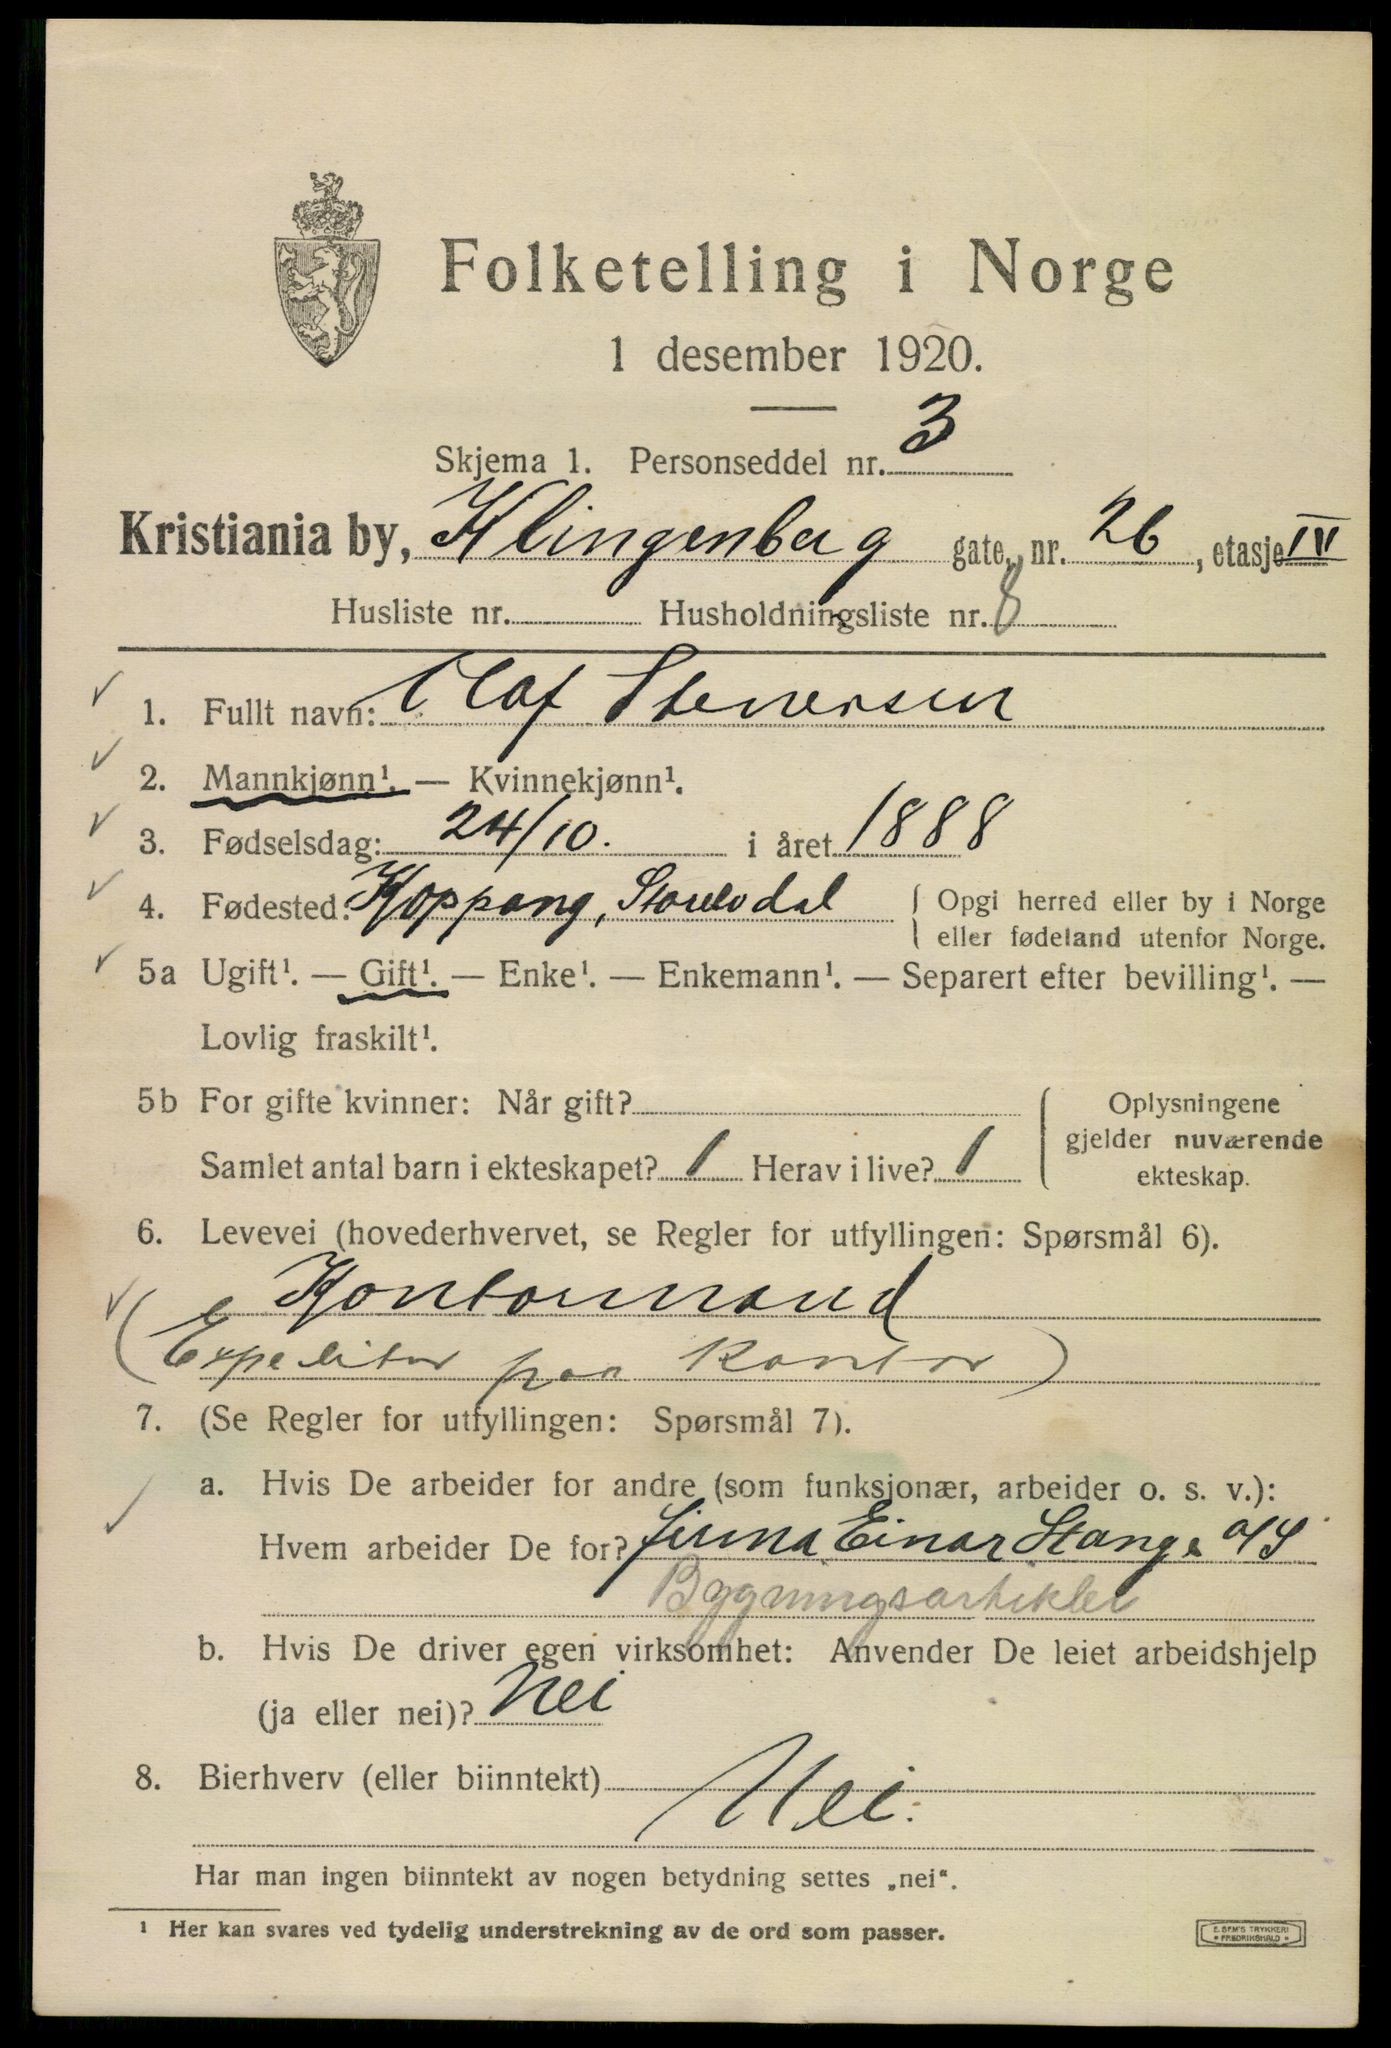 Folketelling i Norge
1 desember 1920.
Skjema 1. Personseddel nr. 3
Kristiania by, Klingenberg gate, nr. 26, etasje IV
Husliste nr. Husholdningsliste nr. 8
1. Fullt navn: Olaf Stenersen
2. Mannkjønn¹. — Kvinnekjønn¹.
3. Fødselsdag: 24/10. i året 1888
4. Fødested: Koppang, Storelvdal { Opgi herred eller by i Norge
eller fødeland utenfor Norge.
5a Ugift¹. — Gift¹. — Enke¹. — Enkemann¹. — Separert efter bevilling¹. —
Lovlig fraskilt¹.
5b For gifte kvinner: Når gift? { Oplysningene
gjelder nuværende
Samlet antal barn i ekteskapet? 1 Herav i live? 1
ekteskap.
6. Levevei (hovederhvervet, se Regler for utfyllingen: Spørsmål 6).
Kontormand
(Expeditør paa kontor)
7. (Se Regler for utfyllingen: Spørsmål 7).
a. Hvis De arbeider for andre (som funksjonær, arbeider o. s. v.):
Hvem arbeider De for? firma Einar Stange A/S
Bygningsartikler
b. Hvis De driver egen virksomhet: Anvender De leiet arbeidshjelp
(ja eller nei)? Nei
8. Bierhverv (eller biinntekt) Nei.
Har man ingen biinntekt av nogen betydning settes „nei“.
¹ Her kan svares ved tydelig understrekning av de ord som passer.
E. SEM'S TRYKKERI
FREDRIKSHALD